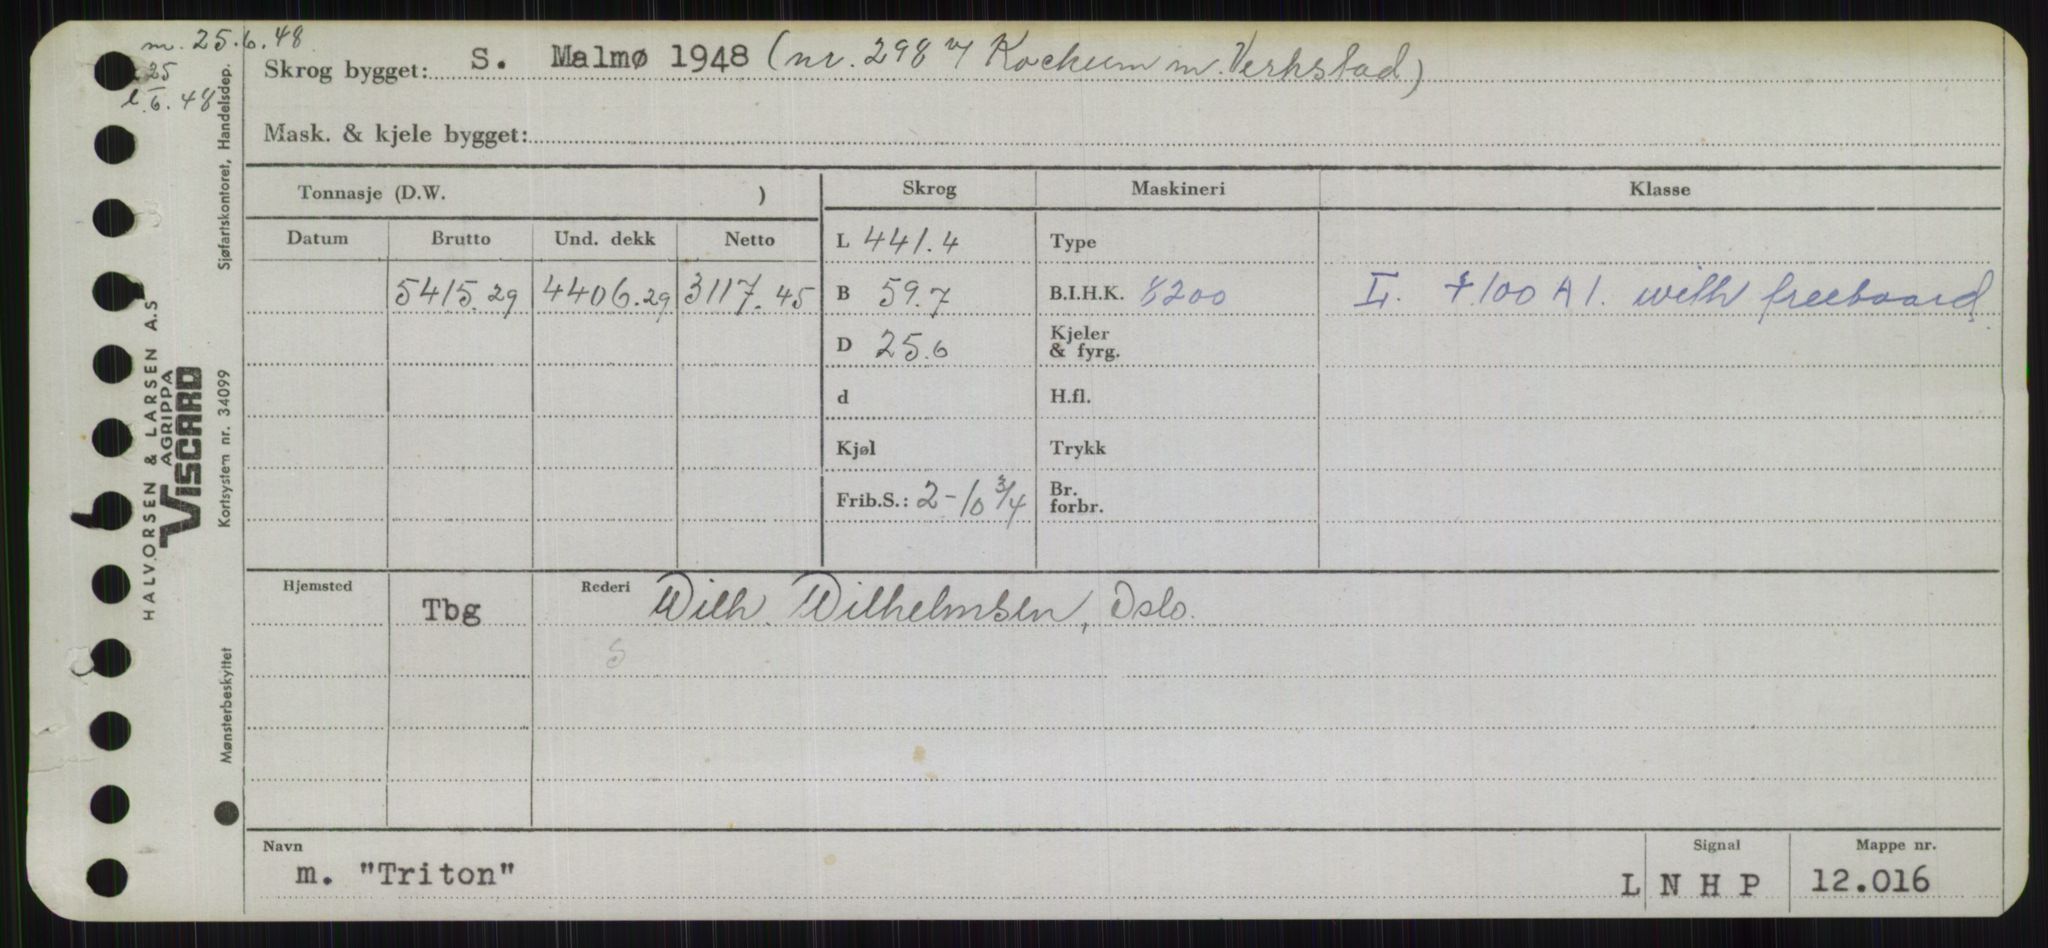 m. 25.6.48
25
6.48
Skrog bygget: S. Malmø 1948 (nr. 298 v/ Kockum m. Verkstad)
Mask. & kjele bygget:
Tonnasje (D.W. )
Skrog Maskineri Klasse
Datum Brutto Und. dekk Netto
L 441.4 Type
5415.29 4406.29 3117.45 B 59.7 B.I.H.K. 8200 L. +100 A 1. with freeboard
D 25.6 Kjeler & fyrg.
d H.fl.
Kjøl Trykk
Frib.S.: 2-10 3/4 Br. forbr.
Hjemsted Tbg Rederi Wilh. Wilhelmsen, Oslo.
S
Navn Signal Mappe nr.
m. "Triton" L N H P 12.016
HALVORSEN & LARSEN A.S
AGRIPPA
VISCARD
Sjøfartskontoret, Handelsdep.
Kortsystem nr. 34099
Mønsterbeskyttet